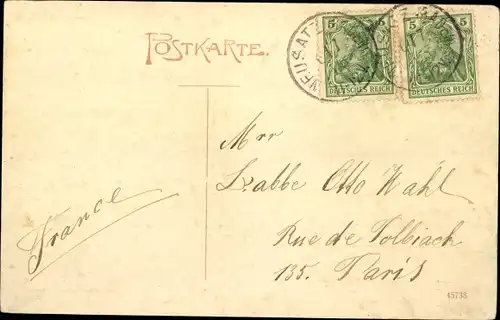 POSTKARTE.
5 5
5 5
NEUSATZ
DEUTSCHES REICH DEUTSCHES REICH
Mrr
L'abbe Otto Wahl
France
Rue de Tolbiach
135. Paris
45738